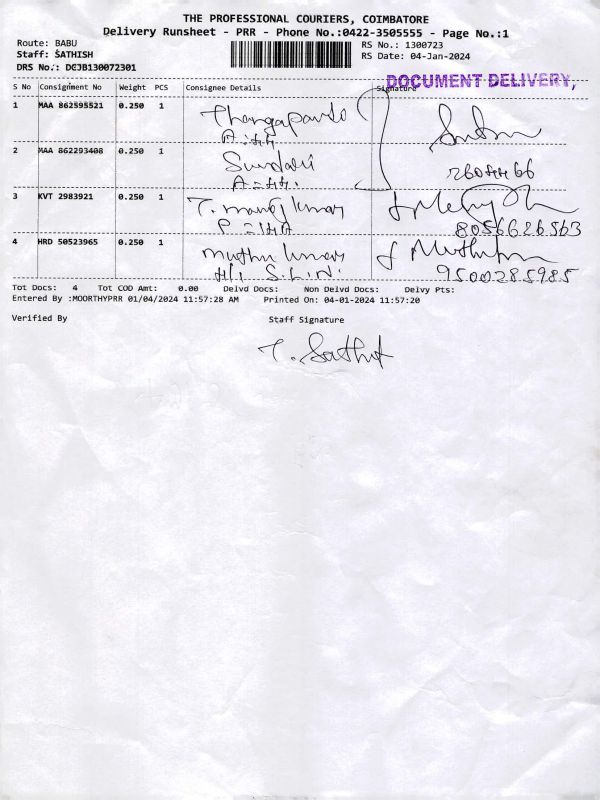 THE PROFESSIONAL COURIERS, COIMBATORE
Delivery Runsheet - PRR - Phone No.:0422-3505555 - Page No.:1
Route: BABU
Staff: SATHISH
DRS No.: DCJB130072301
RS No.: 1300723
RS Date: 04-Jan-2024
DOCUMENT DELIVERY,
S No Consignment No Weight PCS Consignee Details Signature
1 MAA 862595521 0.250 1
2 MAA 862293408 0.250 1 Sundari
2604466
3 KVT 2983921 0.250 1 T. manoj kumar
8056626563
4 HRD 50523965 0.250 1 muthu kumar
9500285985
Tot Docs: 4 Tot COD Amt: 0.00 Delvd Docs: Non Delvd Docs: Delvy Pts:
Entered By :MOORTHYPRR 01/04/2024 11:57:28 AM Printed On: 04-01-2024 11:57:20
Verified By Staff Signature